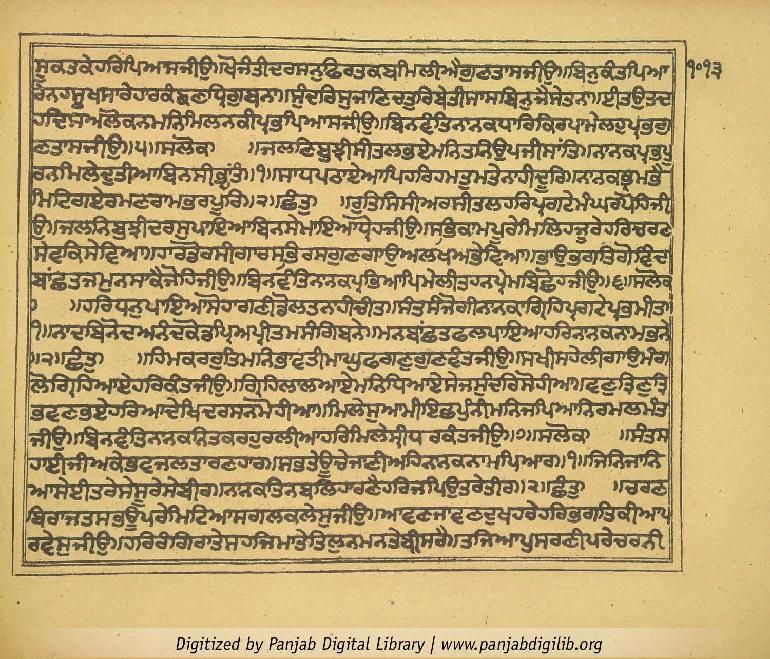 ਸੂਕਤਕੇਹਰਿਪਿਆਸਜੀਉ॥ਖੋਜੰਤੀਦਰਸਨੁਫਿਰਤਕਬਮਿਲੀਐਗੁਣਤਾਸਜੀਉ॥ਬਿਨੁਕੰਤਪਿਆ ੧੦੧੩
ਰੇਨਹਸੂਖਸਾਰੇਹਾਰਕੰਙਣਧ੍ਰਿਗੁਬਨਾ॥ਸੁੰਦਰਿਸੁਜਾਣਿਚਤੁਰਿਬੇਤੀਸਾਸਬਿਨੁਜੈਸੇਤਨਾ॥ਈਤਉਤਦ
ਹਦਿਸਅਲੋਕਨਮਨਿਮਿਲਨਕੀਪ੍ਰਭਪਿਆਸਜੀਉ॥ਬਿਨਵੰਤਿਨਾਨਕਧਾਰਿਕਿਰਪਾਮੇਲਹੁਪ੍ਰਭਗੁ
ਣਤਾਸਜੀਉ॥੫॥ਸਲੋਕ ॥ਜਲਣਿਬੁਝੀਸੀਤਲਭਏਮਨਿਤਨਿਉਪਜੀਸਾਂਤਿ॥ਨਾਨਕਪ੍ਰਭਪੂ
ਰਨਮਿਲੇਦੁਤੀਆਬਿਨਸੀਭ੍ਰਾਂਤਿ॥੧॥ਸਾਧਪਠਾਏਆਪਿਹਰਿਹਮਤੁਮਤੇਨਾਹੀਦੂਰਿ॥ਨਾਨਕਭ੍ਰਮਭੈ
ਮਿਟਿਗਏਰਮਣਰਾਮਭਰਪੂਰਿ॥੨॥ਛੰਤੁ ॥ਰੁਤਿਸਿਸੀਅਰਸੀਤਲਹਰਿਪ੍ਰਗਟੇਮੰਘਰਪੋਹਿਜੀ
ਉ॥ਜਲਨਿਬੁਝੀਦਰਸੁਪਾਇਆਬਿਨਸੇਮਾਇਆਧ੍ਰੋਹਜੀਉ॥ਸਭਿਕਾਮਪੂਰੇਮਿਲਿਹਜੂਰੇਹਰਿਚਰਣ
ਸੇਵਕਿਸੇਵਿਆ॥ਹਾਰਡੋਰਸੀਗਾਰਸਭਿਰਸਗੁਣਗਾਉਅਲਖਅਭੇਵਿਆ॥ਭਾਉਭਗਤਿਗੋਵਿੰਦ
ਬਾਂਛਤਜਮੁਨਸਾਕੈਜੋਹਿਜੀਉ॥ਬਿਨਵੰਤਿਨਾਨਕਪ੍ਰਭਿਆਪਿਮੇਲੀਤਹਨਪ੍ਰੇਮਬਿਛੋਹਜੀਉ॥੬॥ਸਲੋਕ
॥ਹਰਿਧਨੁਪਾਇਆਸੋਹਾਗਣੀਡੋਲਤਨਾਹੀਚੀਤ॥ਸੰਤਸੰਜੋਗੀਨਾਨਕਾਗ੍ਰਿਹਿਪ੍ਰਗਟੇਪ੍ਰਭਮੀਤ॥
੧॥ਨਾਦਬਿਨੋਦਅਨੰਦਕੋਡਪ੍ਰਿਅਪ੍ਰੀਤਮਸੰਗਿਬਨੇ॥ਮਨਬਾਂਛਤਫਲਪਾਇਆਹਰਿਨਾਨਕਨਾਮਭਨੇ
॥੨॥ਛੰਤੁ ॥ਹਿਮਕਰਰੁਤਿਮਨਿਭਾਵਤੀਮਾਘੁਫਗਣੁਗੁਣਵੰਤਜੀਉ॥ਸਖੀਸਹੇਲੀਗਾਉਮੰਗ
ਲੋਗ੍ਰਿਹਿਆਏਹਰਿਕੰਤਜੀਉ॥ਗ੍ਰਿਹਿਲਾਲਆਏਮਨਿਧਿਆਏਸੇਜਸੁੰਦਰਿਸੋਹੀਆ॥ਵਣੁਤ੍ਰਿਣੁਤ੍ਰਿ
ਭਵਣਭਏਹਰਿਆਦੇਖਿਦਰਸਨਮੋਹੀਆ॥ਮਿਲੇਸੁਆਮੀਇਛਪੁੰਨੀਮਨਿਜਪਿਆਨਿਰਮਲਮੰਤ
ਜੀਉ॥ਬਿਨਵੰਤਿਨਾਨਕਨਿਤਕਰਹੁਰਲੀਆਹਰਿਮਿਲੇਸ੍ਰੀਧਰਕੰਤਜੀਉ॥੭॥ਸਲੋਕ ॥ਸੰਤਸ
ਹਾਈਜੀਅਕੇਭਵਜਲਤਾਰਣਹਾਰ॥ਸਭਤੇਊਚੇਜਾਣੀਅਹਿਨਾਨਕਨਾਮਪਿਆਰ॥੧॥ਜਿਨਜਾਨਿ
ਆਸੇਈਤਰੇਸੇਸੂਰੇਸੇਬੀਰ॥ਨਾਨਕਤਿਨਬਲਿਹਾਰਣੈਹਰਿਜਪਿਉਤਰੇਤੀਰ॥੨॥ਛੰਤੁ ॥ਚਰਣ
ਬਿਰਾਜਤਸਭਊਪਰੇਮਿਟਿਆਸਗਲਕਲੇਸੁਜੀਉ॥ਆਵਣਜਾਵਣਦੁਖਹਰੇਹਰਿਭਗਤਿਕੀਆਪ
ਰਵੇਸੁਜੀਉ॥ਹਰਿਰੰਗਿਰਾਤੇਸਹਜਿਮਾਤੇਤਿਲੁਨਮਨਤੇਬੀਸਰੈ॥ਤਜਿਆਪੁਸਰਣੀਪਰੇਚਰਨੀ
Digitized by Panjab Digital Library | www.panjabdigilib.org